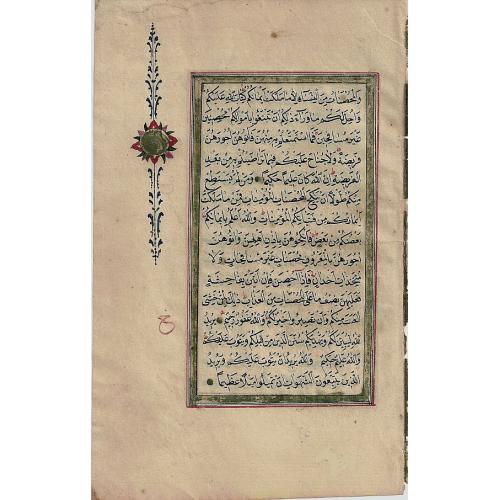 وَالْمُحْصَنَاتُ مِنَ النِّسَاءِ اِلَّا مَا مَلَكَتْ اَيْمَانُكُمْ كِتَابَ اللهِ عَلَيْكُمْ
وَاُحِلَّ لَكُمْ مَا وَرَاءَ ذٰلِكُمْ اَنْ تَبْتَغُوا بِاَمْوَالِكُمْ مُحْصِنِينَ
غَيْرَ مُسَافِحِينَ فَمَا اسْتَمْتَعْتُمْ بِهِ مِنْهُنَّ فَاٰتُوهُنَّ اُجُورَهُنَّ
فَرِيضَةً وَلَا جُنَاحَ عَلَيْكُمْ فِيمَا تَرَاضَيْتُمْ بِهِ مِنْ بَعْدِ
الْفَرِيضَةِ اِنَّ اللهَ كَانَ عَلِيمًا حَكِيمًا وَمَنْ لَمْ يَسْتَطِعْ
مِنْكُمْ طَوْلًا اَنْ يَنْكِحَ الْمُحْصَنَاتِ الْمُؤْمِنَاتِ فَمِنْ مَا مَلَكَتْ
اَيْمَانُكُمْ مِنْ فَتَيَاتِكُمُ الْمُؤْمِنَاتِ وَاللهُ اَعْلَمُ بِاِيمَانِكُمْ
بَعْضُكُمْ مِنْ بَعْضٍ فَانْكِحُوهُنَّ بِاِذْنِ اَهْلِهِنَّ وَاٰتُوهُنَّ
اُجُورَهُنَّ بِالْمَعْرُوفِ مُحْصَنَاتٍ غَيْرَ مُسَافِحَاتٍ وَلَا
مُتَّخِذَاتِ اَخْدَانٍ فَاِذَا اُحْصِنَّ فَاِنْ اَتَيْنَ بِفَاحِشَةٍ
فَعَلَيْهِنَّ نِصْفُ مَا عَلَى الْمُحْصَنَاتِ مِنَ الْعَذَابِ ذٰلِكَ لِمَنْ خَشِيَ
الْعَنَتَ مِنْكُمْ وَاَنْ تَصْبِرُوا خَيْرٌ لَكُمْ وَاللهُ غَفُورٌ رَحِيمٌ يُرِيدُ
اللهُ لِيُبَيِّنَ لَكُمْ وَيَهْدِيَكُمْ سُنَنَ الَّذِينَ مِنْ قَبْلِكُمْ وَيَتُوبَ عَلَيْكُمْ
وَاللهُ عَلِيمٌ حَكِيمٌ وَاللهُ يُرِيدُ اَنْ يَتُوبَ عَلَيْكُمْ وَيُرِيدُ
الَّذِينَ يَتَّبِعُونَ الشَّهَوَاتِ اَنْ تَمِيلُوا مَيْلًا عَظِيمًا